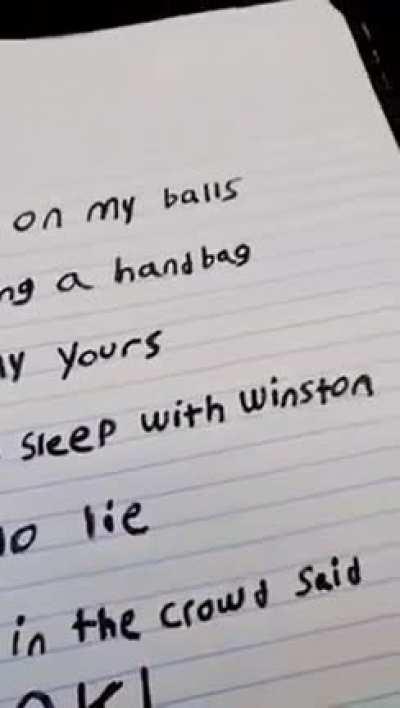 on my balls
a handbag
yours
sleep with winston
lie
in the crowd said